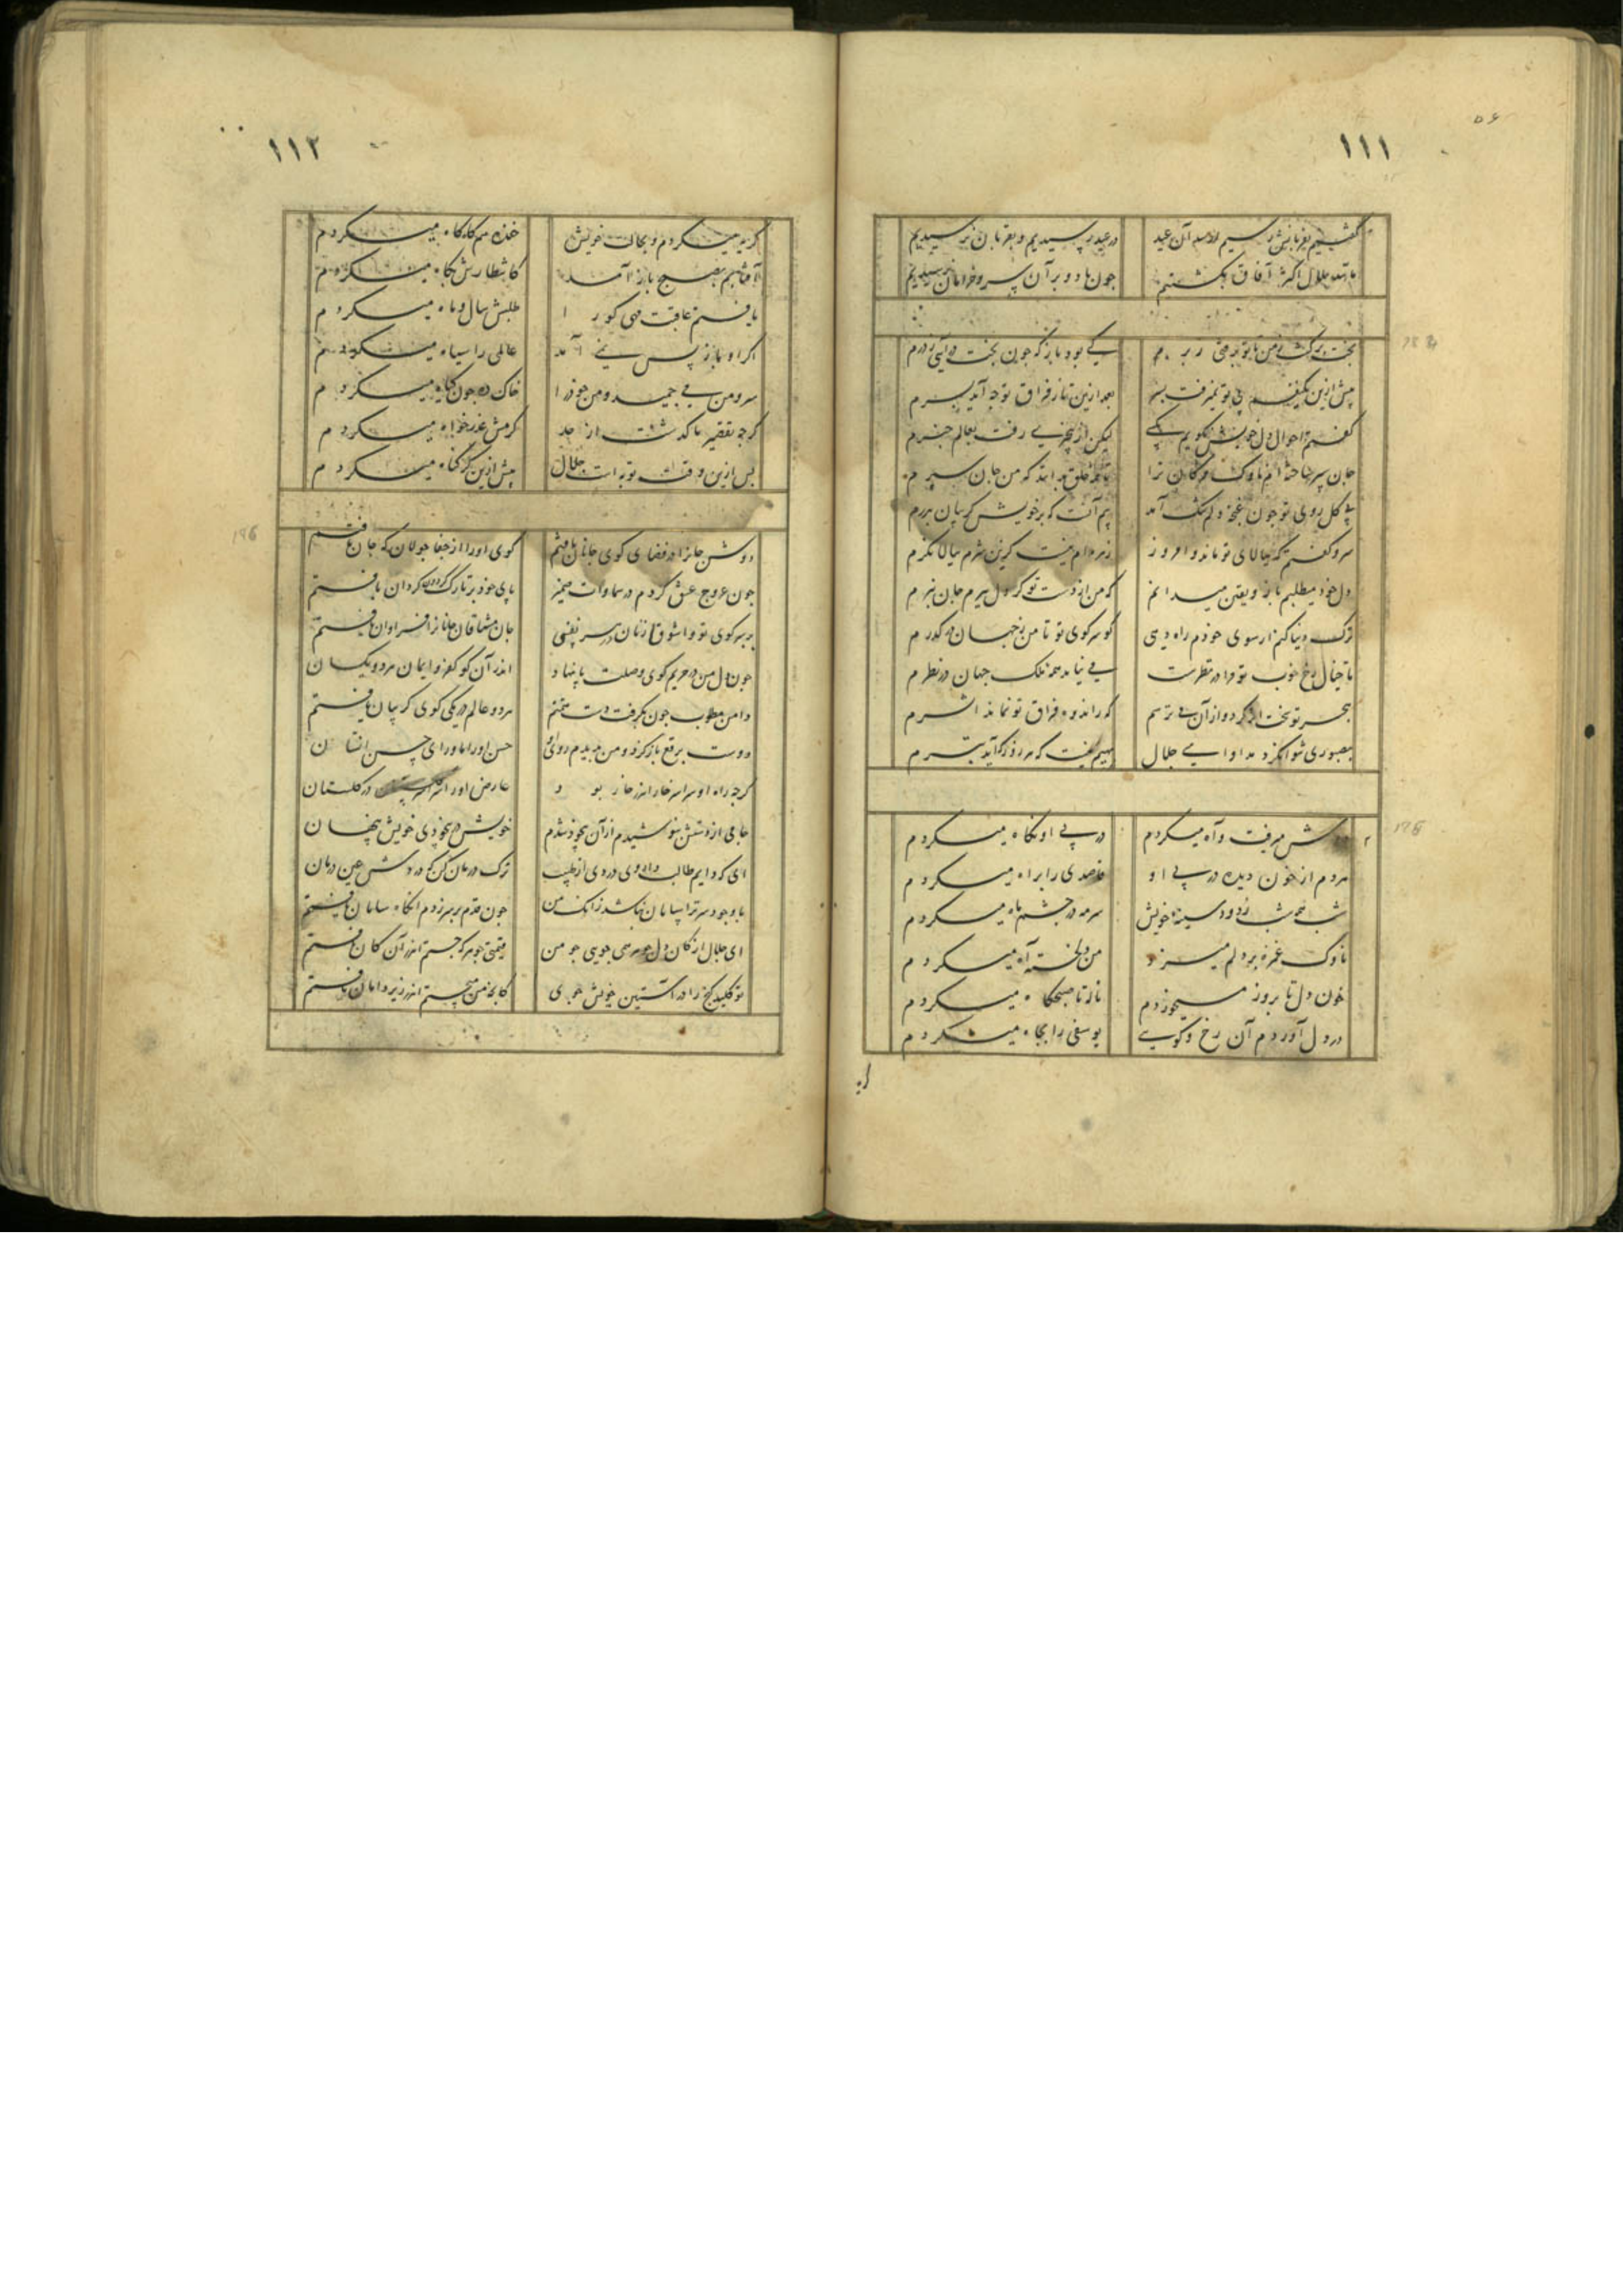 ۱۱۱
گفتیم بقربانش رسیم از مه آن عید در عید رسیدیم و بقربان نرسیدیم
مانند جلال اکثر آفاق بگشتیم چون باد و بر آن سرو خرامان نرسیدیم
بخت برگشت ز من تا تو برفتی ز برم کی بود باز که چون بخت در آیی ز درم
پیش ازین یکنفسم بی تو نمیرفت بسر بعد ازین تا ز فراق تو چه آید بسرم
گفتم احوال دل خویش بگویم بکسی لیکن از بیخبری رفت بعالم خبرم
جان سپر ساخته ام ناوک مژگان ترا تا همه خلق بدانند که من جان سپرم
بی گل روی تو چون غنچه دلم تنگ آمد بیم آنست که بر خویش گریبان بدرم
سرو گفتم که ببالای تو ماند و امروز زهره ام نیست کزین شرم ببالا نگرم
دل خود میطلبم باز و یقین میدانم که من از دست تو گر دل ببرم جان نبرم
ترک دنیا کنم ار سوی خودم راه دهی کو سر کوی تو تا من ز جهان در گذرم
تا خیال رخ خوب تو مرا در نظرست می نیاید همه ملک جهان در نظرم
هجر تو سخت اثر کرد و از آن می ترسم که در اندوه فراق تو نماند اثرم
بصبوری شوانکرد مداوای جلال
دوش میرفت و آه میکردم در پی او نگاه میکردم
مردم از خون دیده در پی او قاصدی را براه میکردم
شب همه شب ز دود سینه خویش سرمه در چشم ماه میکردم
ناوک غمزه بر دلم میزد من دلخسته آه میکردم
خون دل تا بروز میخوردم ناله تا صبحگاه میکردم
در دل آوردم آن رخ و گویی یوسفی را بچاه میکردم
۱۱۲
گریه میکردم و بحالت خویش خنده هم گاه گاه میکردم
آفتابم بصبح باز آمد کانتظارش بگاه میکردم
یافتم عاقبت مهی کورا طلبش سال و ماه میکردم
اگر او باز پس نمی آمد عالمی را سیاه میکردم
سرو من می چمید و من خود را خاک ره چون گیاه میکردم
گرچه تقصیر ما گذشت از حد کرمش عذرخواه میکردم
پس ازین وقت توبه است جلال پیش ازین گر گناه میکردم
دوش جانرا در فضای کوی جانان یافتم
چون عروج عشق کردم در سماوات پای خود بر تارک گردون گردان یافتم
بر سر کوی تو جان مشتاقان جانانرا فراوان یافتم
چون دل من در حریم کوی وصلت پا نهاد اندر آن کو کفر و ایمان هر دو یکسان
دامن مطلوب چون بگرفت دست همتم هر دو عالم در یکی کوی گریبان یافتم
دوست برقع باز کرد و من بدیدم روی او حسن او را ماورای حسن انسان
گرچه راه او سراسر خار اندر خار بود عارض او را گلستان در گلستان
جامی از دستش بنوشیدم از آن بیخود شدم خویش در بیخودی خویش پنهان
ای که دایم طالب داروی دردی از طبیب ترک درمان کن که در دردش عین درمان
با وجود سر ترا سامان نباشد زانک من چون قدم بر سر زدم آنگاه سامان یافتم
ای جلال از کان دل جوهر همی جویی چو من قیمتی جوهر که جستم اندر آن کان یافتم
تو کلید گنج را در آستین خویش جوی کانچه من میجستم اندر زیر دامان یافتم